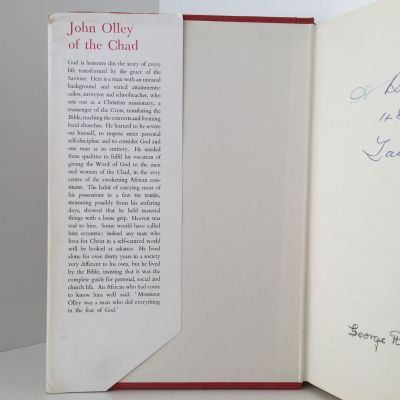 John Olley
of the Chad
God is honoure din the story of every
life transformed by the grace of the
Saviour. Here is a man with an unusual
background and varied attainments:
sailor, surveyor and schoolteacher, who
sets out as a Christian missionary, a
messenger of the Cross, translating the
Bible, teaching the converts and forming
local churches. He learned to be severe
on himself, to impose strict personal
self-discipline and to consider God and
one man as an entirety. He needed
these qualities to fulfil his vocation of
giving the Word of God to the men and
women of the Chad, in the very
centre of the awakening African con-
tinent. The habit of carrying most of
his possessions in a few tin trunks,
stemming possibly from his seafaring
days, showed that he held material
things with a loose grip. Heaven was
real to him. Some would have called
him eccentric; indeed any man who
lives for Christ in a self-centred world
will be looked at askance. He lived
alone for over thirty years in a society
very different to his own, but he lived
by the Bible, insisting that it was the
complete guide for personal, social and
church life. An African who had come
to know him well said: 'Monsieur
Olley was a man who did everything
in the fear of God.'
George